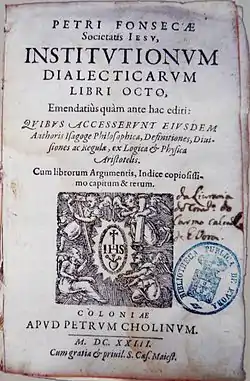 PETRI FONSECÆ
Societatis IESV,
INSTITVTIONVM
DIALECTICARVM
LIBRI OCTO,
Emendatiùs quàm ante hac editi:
QVIBVS ACCESSERVNT EIVSDEM
Authoris Isagoge Philosophica, Definitiones, Diui-
siones ac Regulæ, ex Logica & Physica
Aristotelis.
Cum librorum Argumentis, Indice copiosissi-
mo capitum & rerum.
da Livraria
do
Carmo
IHS
BIBLIOTHECA PUBLICA
COLONIAE
APVD PETRVM CHOLINVM.
M. DC. XXIII.
Cum gratia & priuil. S. Cæs. Maiest.